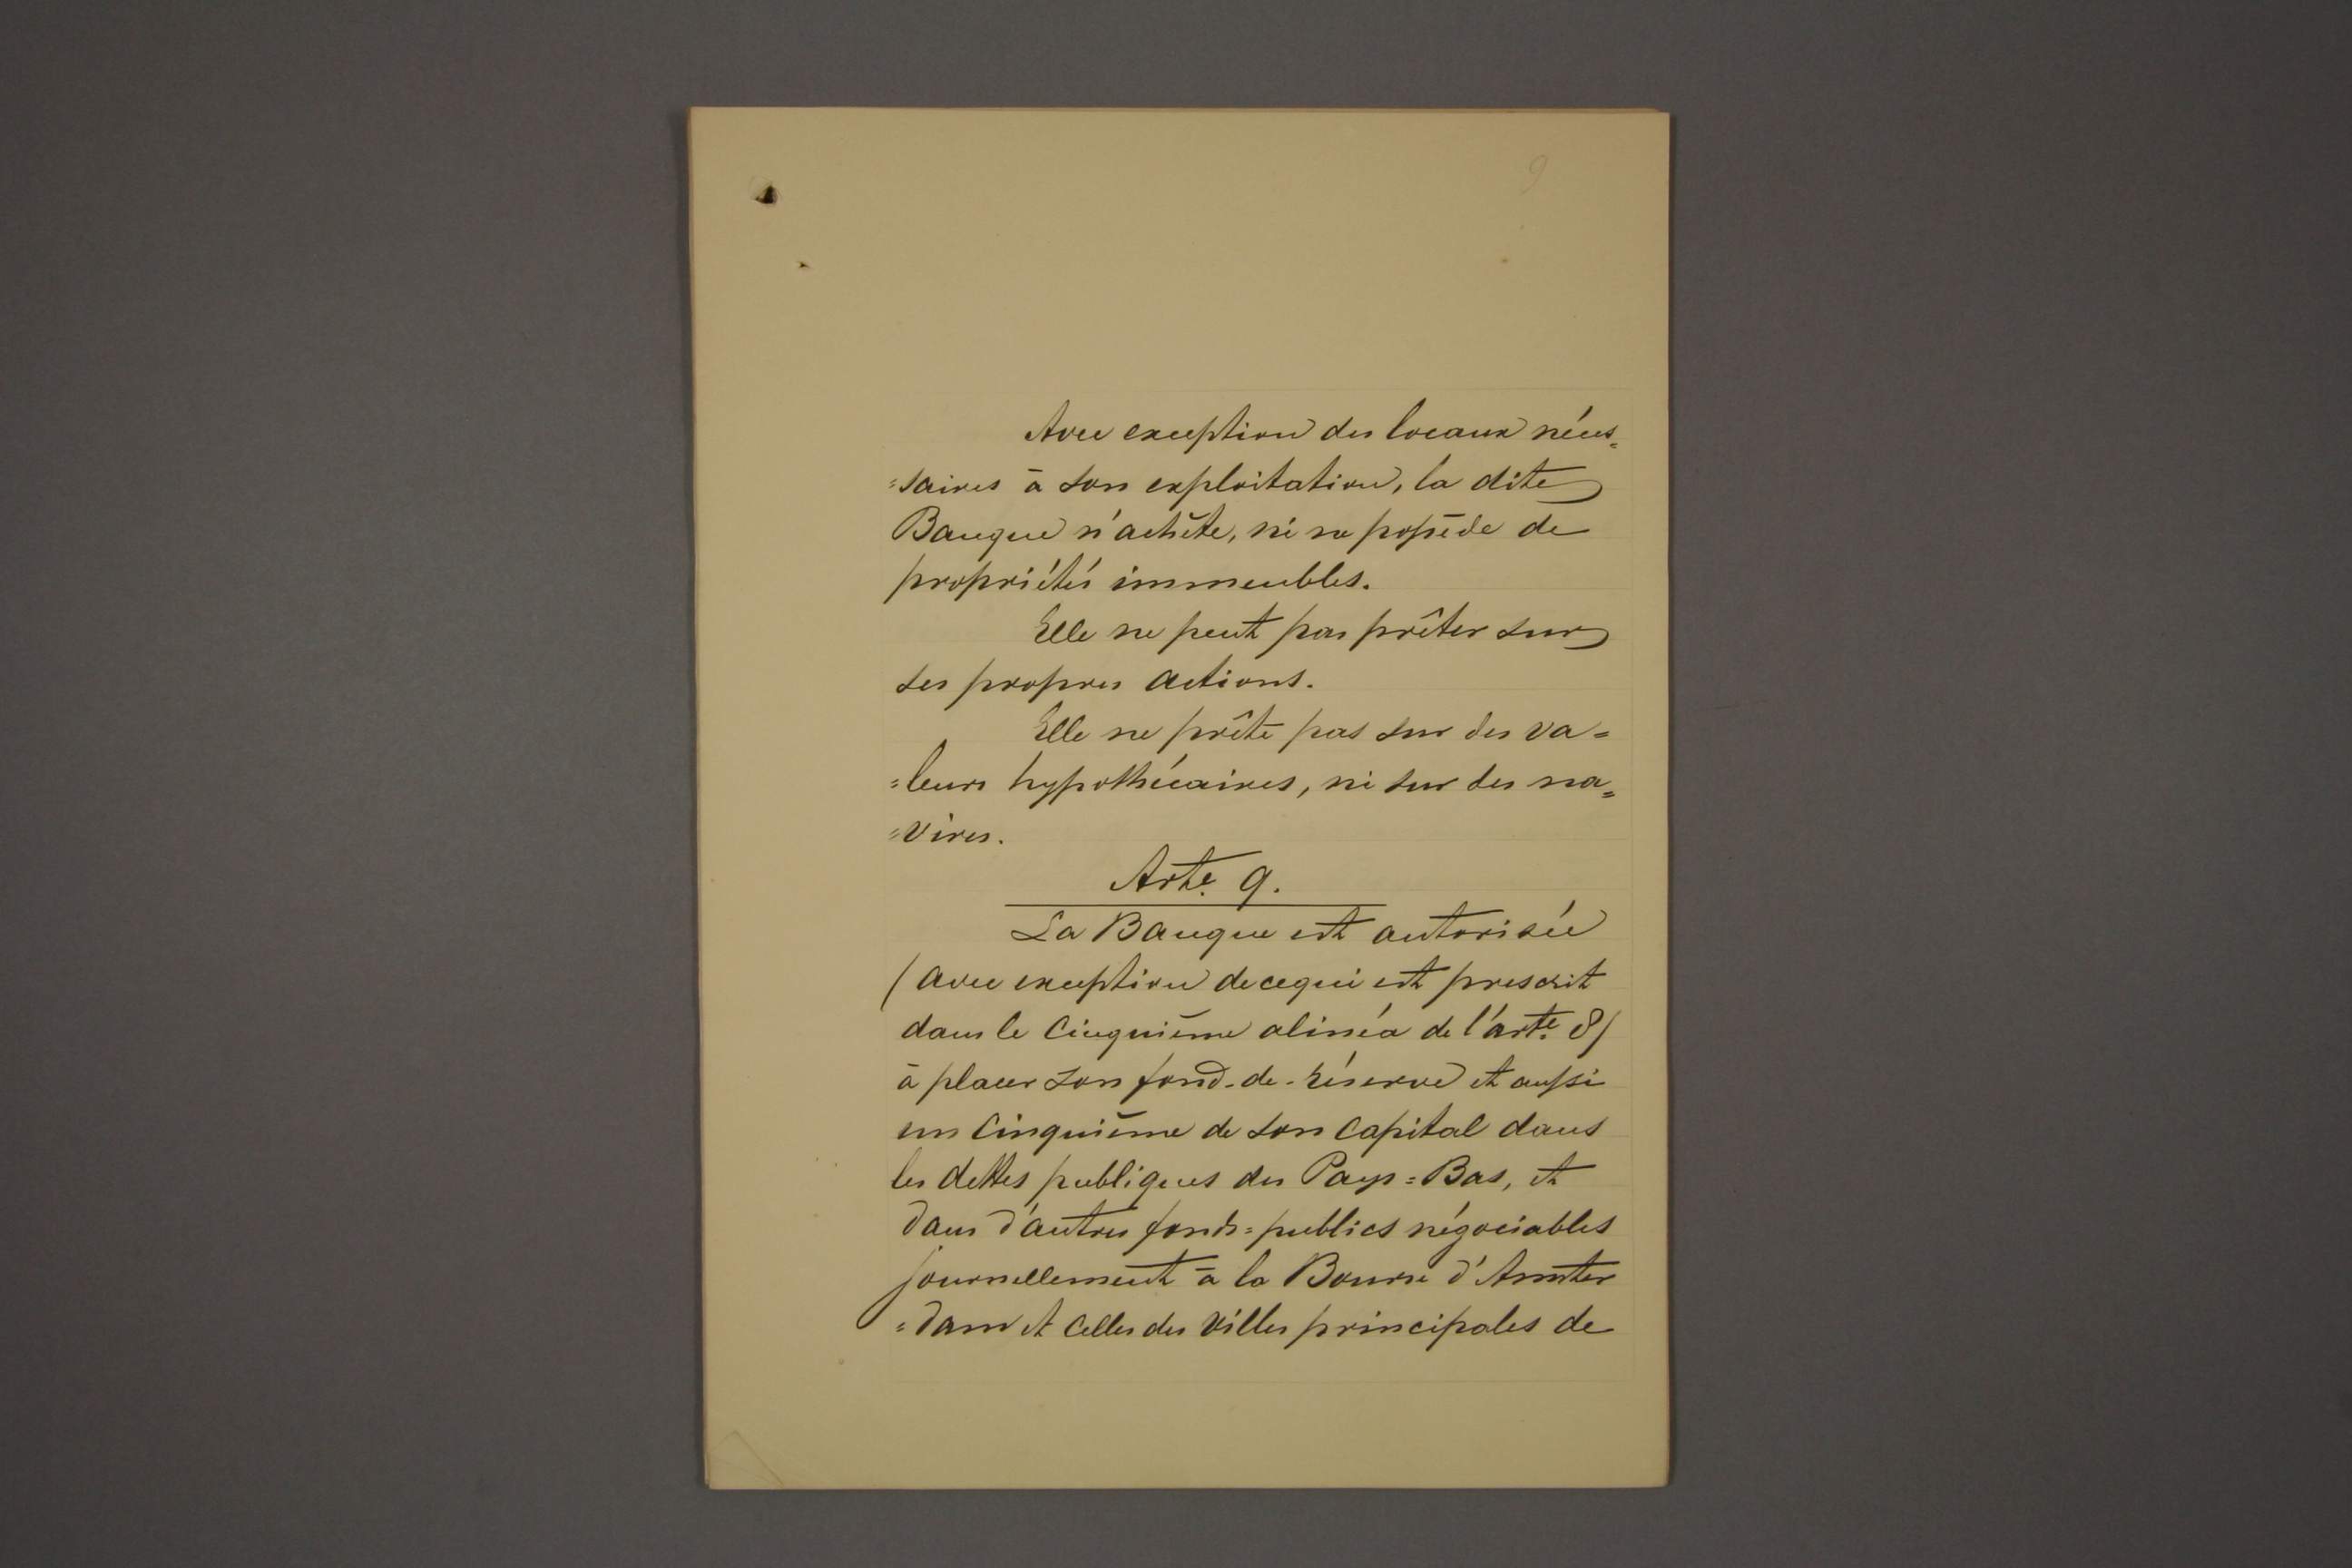 9
Avec exception des locaux néces=
=saires à son exploitation, la dite
Banque n'achète, ni ne possède de
propriétés immeubles.
Elle ne peut pas prêter sur
ses propres actions.
Elle ne prête pas sur des va=
=leurs hypothécaires, ni sur des na=
=vires.
Arte. 9.
La Banque est autorisée
(avec exception de ce qui est prescrit
dans le cinquième alinéa de l'arte. 8)
à placer son fond-de-réserve et aussi
un cinquième de son capital dans
les dettes publiques des Pays=Bas, et
dans d'autres fonds=publics négociables
journellement à la Bourse d'Amster
=dam et celles des villes principales de